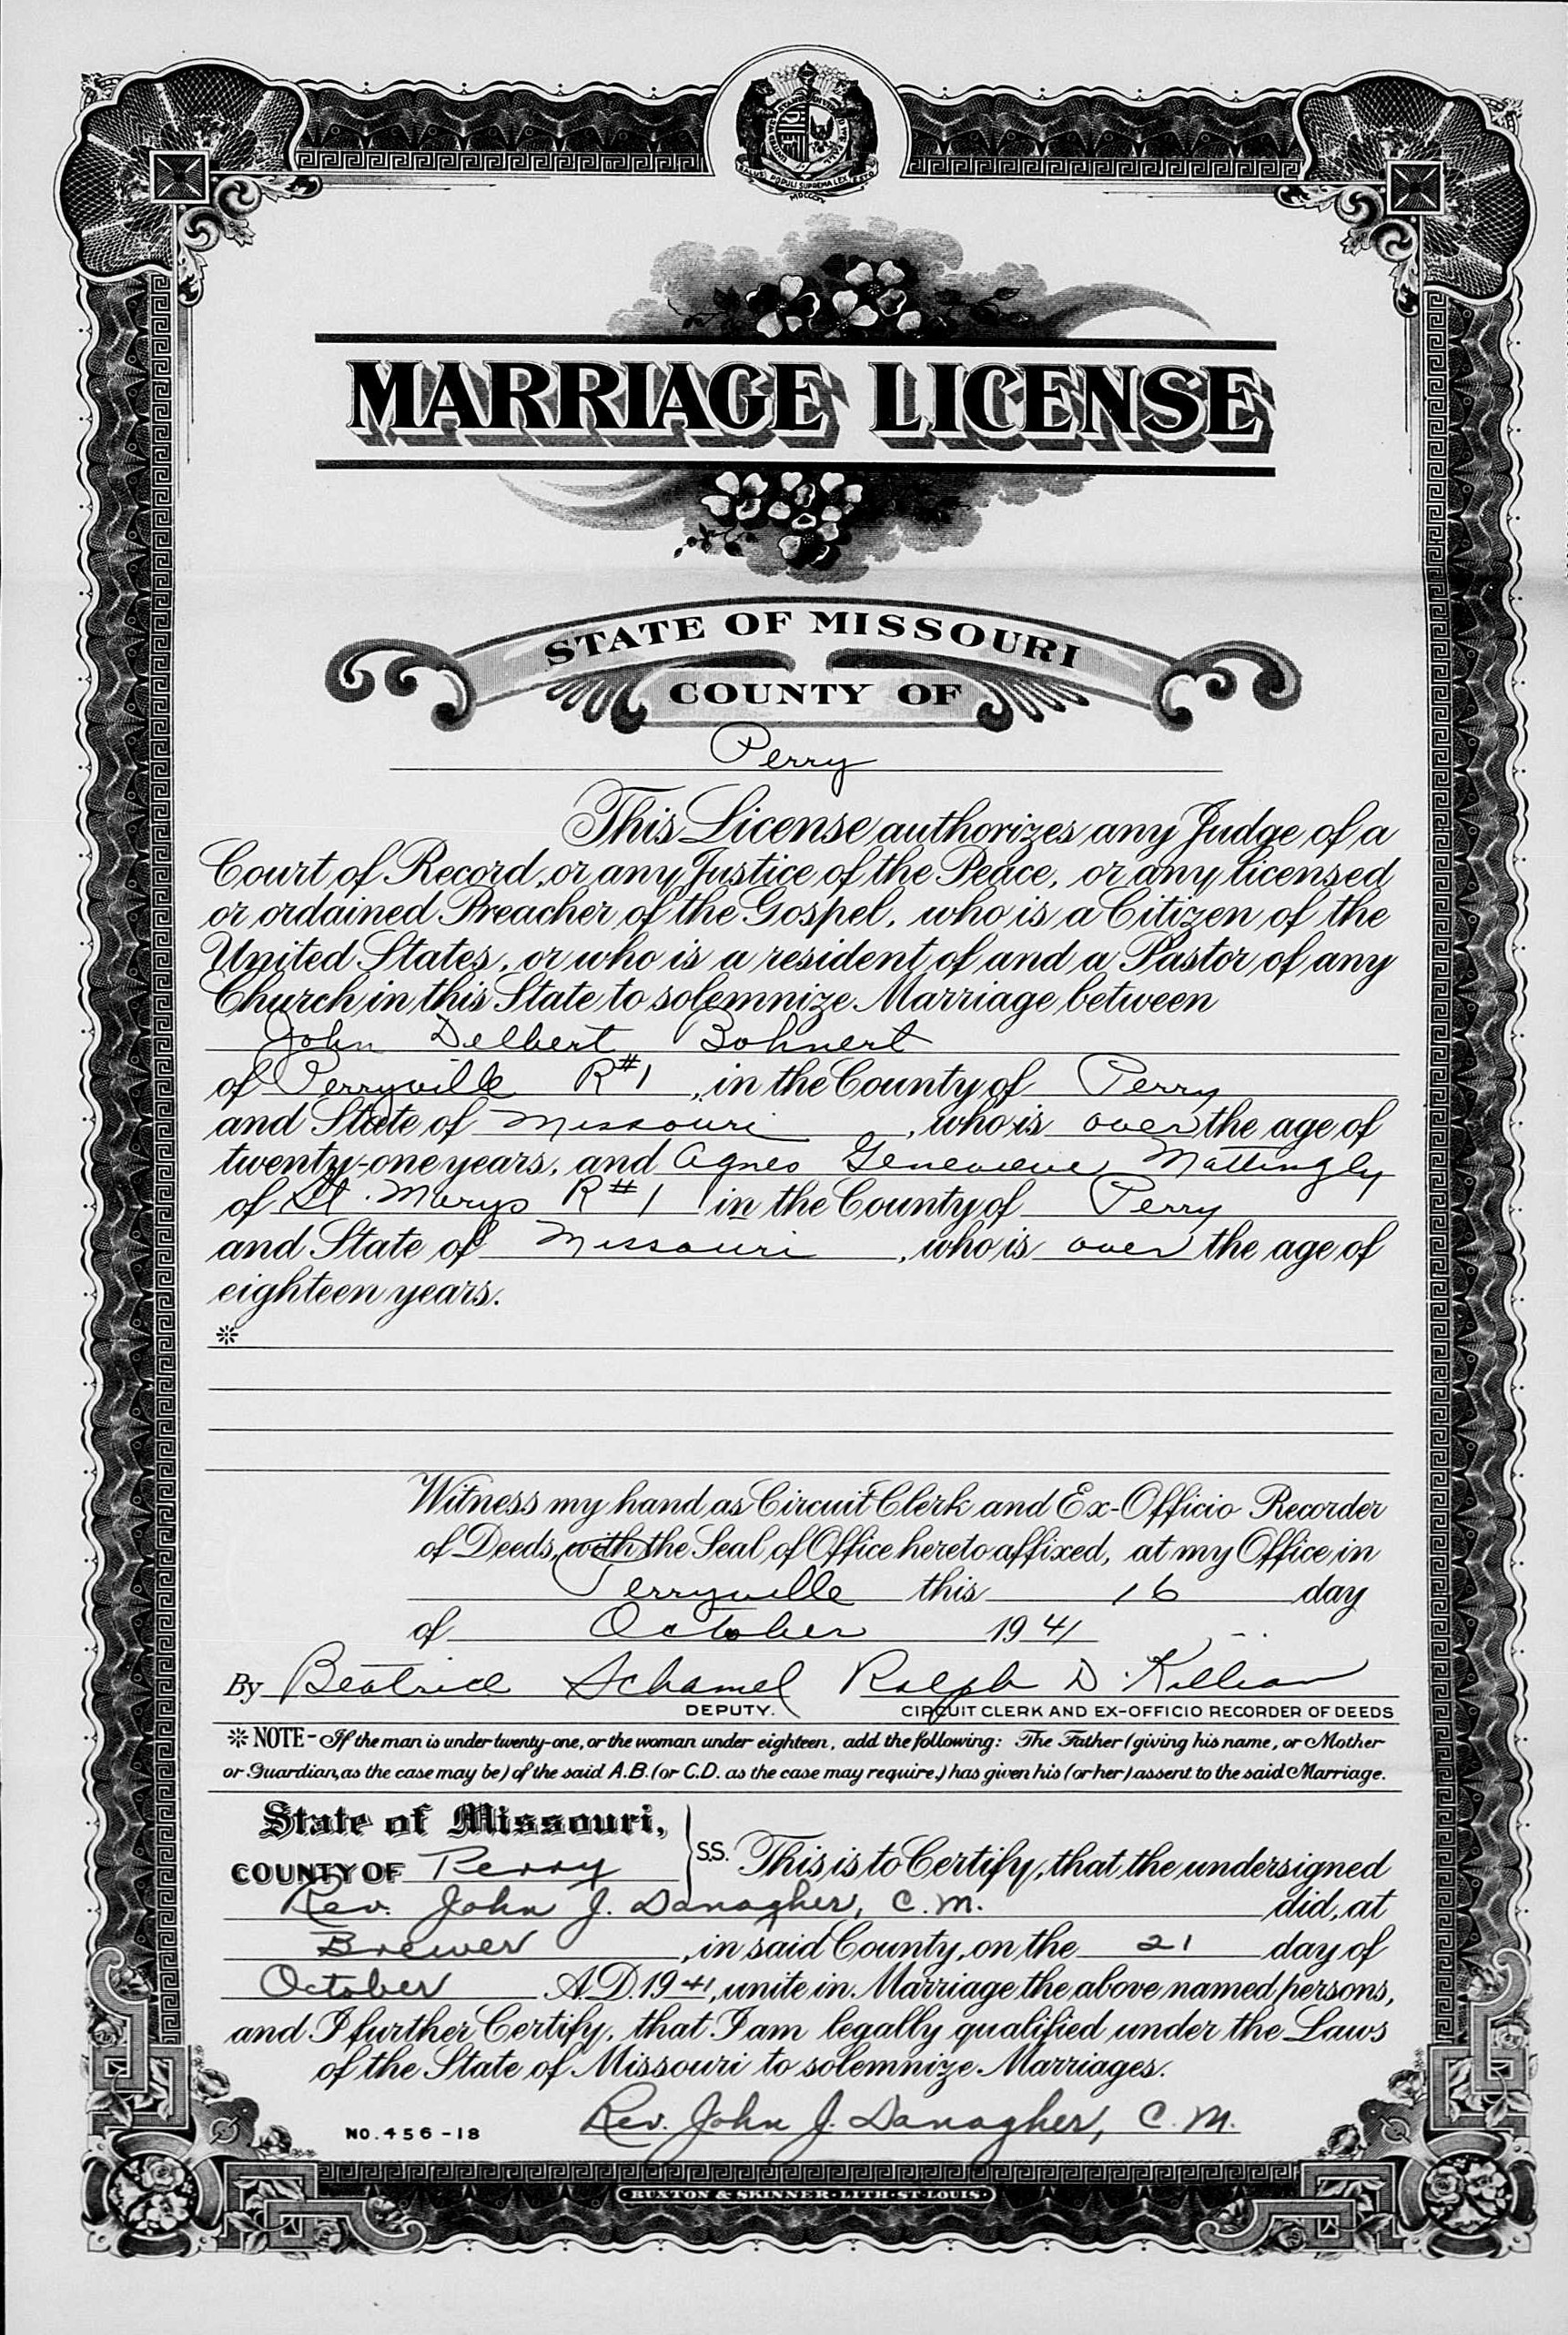 SALUS POPULI SUPREMA LEX ESTO
MARRIAGE LICENSE
STATE OF MISSOURI
COUNTY OF
Perry
This License authorizes any Judge of a
Court of Record, or any Justice of the Peace, or any licensed
or ordained Preacher of the Gospel, who is a Citizen of the
United States, or who is a resident of and a Pastor of any
Church in this State to solemnize Marriage between
John Delbert Bohnert
of Perryville R#1, in the County of Perry
and State of Missouri, who is over the age of
twenty-one years, and Agnes Genevieve Mattingly
of St. Marys R#1 in the County of Perry
and State of Missouri, who is over the age of
eighteen years.
※
Witness my hand as Circuit Clerk and Ex-Officio Recorder
of Deeds, with the Seal of Office hereto affixed, at my Office in
Perryville this 16 day
of October 1941
By Beatrice Schamel Ralph D. Killian
DEPUTY. CIRCUIT CLERK AND EX-OFFICIO RECORDER OF DEEDS
※ NOTE - If the man is under twenty-one, or the woman under eighteen, add the following: The Father (giving his name, or Mother
or Guardian, as the case may be) of the said A.B. (or C.D. as the case may require,) has given his (or her) assent to the said Marriage.
State of Missouri,
COUNTY OF Perry } S.S. This is to Certify, that the undersigned
Rev. John J. Danagher, C.M. did, at
Brewer, in said County, on the 21 day of
October A.D. 1941, unite in Marriage the above named persons,
and I further Certify, that I am legally qualified under the Laws
of the State of Missouri to solemnize Marriages.
NO. 456-18 Rev. John J. Danagher, C.M.
BUXTON & SKINNER·LITH·ST·LOUIS·